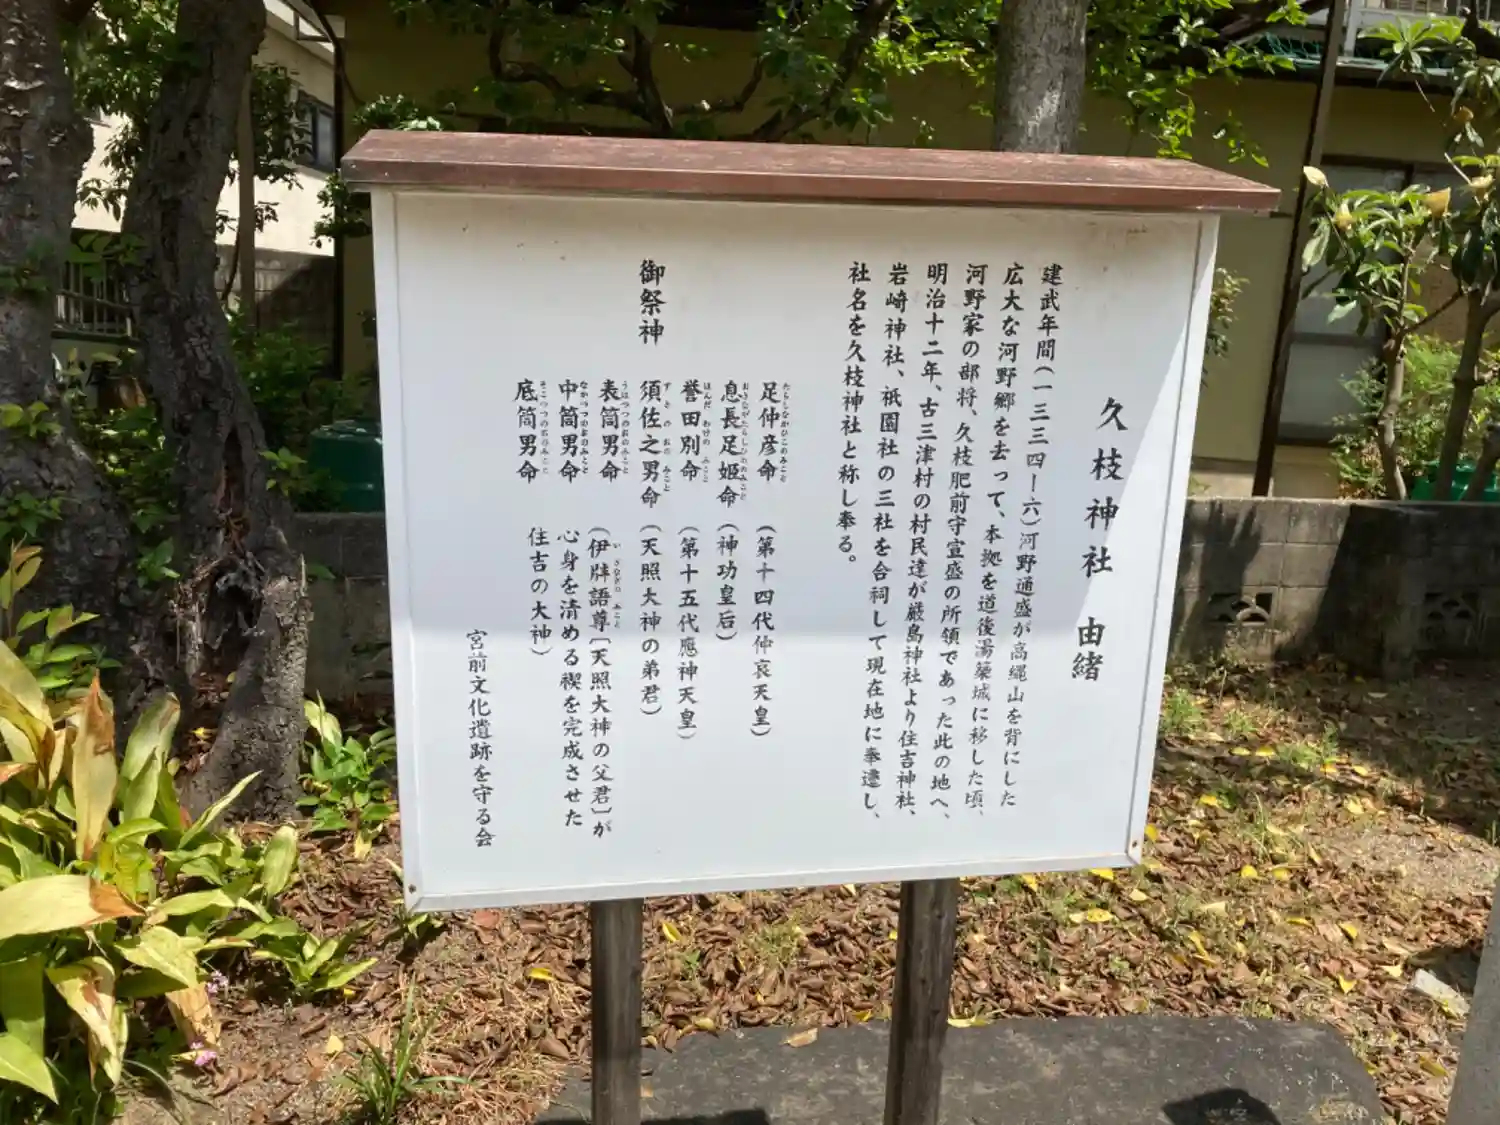 久枝神社 由緒
建武年間(一三三四ー六)河野通盛が高縄山を背にした
広大な河野郷を去って、本拠を道後湯築城に移した頃、
河野家の部将、久枝肥前守宣盛の所領であった此の地へ、
明治十二年、古三津村の村民達が厳島神社より住吉神社、
岩崎神社、祇園社の三社を合祠して現在地に奉遷し、
社名を久枝神社と称し奉る。
御祭神
足仲彦命 (第十四代仲哀天皇)
息長足姫命 (神功皇后)
誉田別命 (第十五代應神天皇)
須佐之男命 (天照大神の弟君)
表筒男命
中筒男命
底筒男命
(伊牂語尊〔天照大神の父君〕が
心身を清める禊を完成させた
住吉の大神)
宮前文化遺跡を守る会